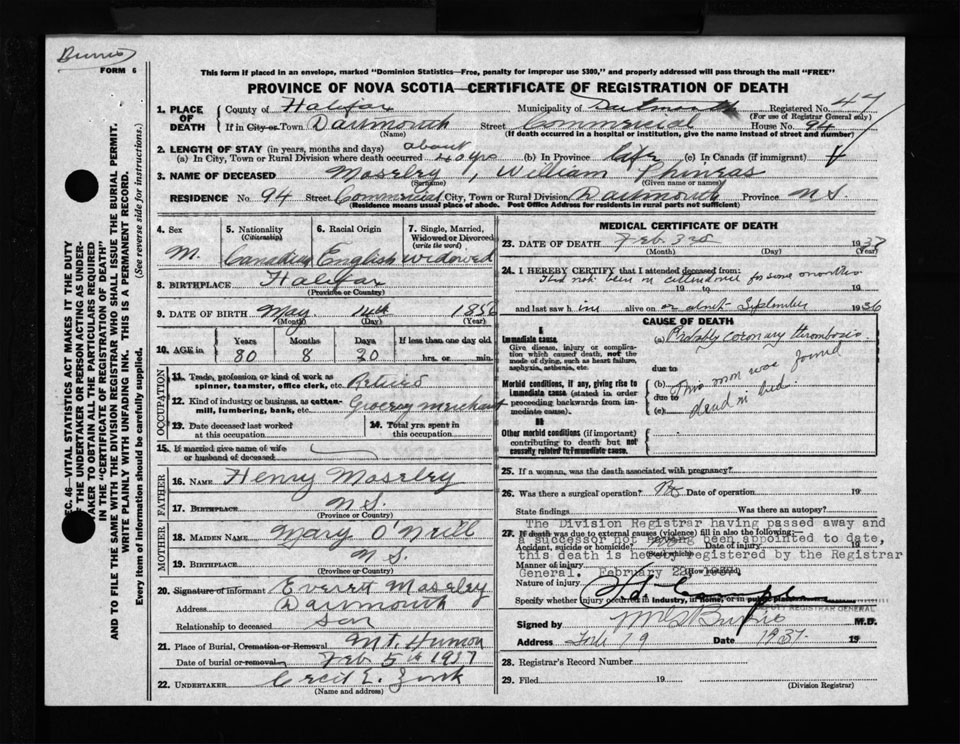 Burris
FORM 6
This form if placed in an envelope, marked "Dominion Statistics—Free, penalty for improper use $300," and properly addressed will pass through the mail "FREE"
PROVINCE OF NOVA SCOTIA—CERTIFICATE OF REGISTRATION OF DEATH
1. PLACE OF DEATH
County of Halifax Municipality of Dartmouth Registered No. 47
(For use of Registrar General only)
If in City or Town Dartmouth Street Commercial House No. 94
(Name) (If death occurred in a hospital or institution, give the name instead of street and number)
2. LENGTH OF STAY (in years, months and days) about
(a) In City, Town or Rural Division where death occurred 40 yrs (b) In Province life (c) In Canada (if immigrant)
3. NAME OF DECEASED Moseley, William Phineas
(Surname) (Given name or names)
RESIDENCE No. 94 Street Commercial City, Town or Rural Division Dartmouth Province NS
(Residence means usual place of abode. Post Office Address for residents in rural parts not sufficient)
4. Sex M.
5. Nationality (Citizenship) Canadian
6. Racial Origin English
7. Single, Married, Widowed or Divorced (write the word) Widowed
8. BIRTHPLACE Halifax
(Province or Country)
9. DATE OF BIRTH May 14th 1856
(Month) (Day) (Year)
10. AGE in Years 80 Months 8 Days 20 If less than one day old hrs. or min.
OCCUPATION
11. Trade, profession or kind of work as spinner, teamster, office clerk, etc. Retired
12. Kind of industry or business, as cotton-mill, lumbering, bank, etc. Grocery merchant
13. Date deceased last worked at this occupation
14. Total yrs. spent in this occupation
15. If married give name of wife or husband of deceased
FATHER
16. NAME Henry Moseley
17. BIRTHPLACE N S
(Province or Country)
MOTHER
18. MAIDEN NAME Mary O'Neill
19. BIRTHPLACE N S.
(Province or Country)
20. Signature of informant Everett Moseley
Address Dartmouth
Relationship to deceased son
21. Place of Burial, Cremation or Removal Mt. Hermon
Date of burial or removal Feb 5th 1937
22. UNDERTAKER Cecil E. Zink
(Name and address)
MEDICAL CERTIFICATE OF DEATH
23. DATE OF DEATH Feb 3rd 1937
(Month) (Day) (Year)
24. I HEREBY CERTIFY that I attended deceased from:
Had not been in attendance for some months
19 to 19
and last saw him alive on or about September 1936
CAUSE OF DEATH
I
Immediate cause. Give disease, injury or complication which caused death, not the mode of dying, such as heart failure, asphyxia, asthenia, etc.
(a) Probably coronary thrombosis
due to
Morbid conditions, if any, giving rise to immediate cause (stated in order proceeding backwards from immediate cause).
(b) This man was found
due to
(c) dead in bed.
II
Other morbid conditions (if important) contributing to death but not causally related to immediate cause.
25. If a woman, was the death associated with pregnancy?
26. Was there a surgical operation? No Date of operation 19
State findings Was there an autopsy?
The Division Registrar having passed away and
27. If death was due to external causes (violence) fill in also the following:
a successor not having been appointed to date,
Accident, suicide or homicide? Date of injury 19
this death is hereby registered by the Registrar
Manner of injury
General. February 22, 1937.
Nature of injury
Specify whether injury occurred in industry, in home, or in public place
DEPUTY REGISTRAR GENERAL
Signed by M G Burris M.D.
Address Date 1937 19
28. Registrar's Record Number
29. Filed 19
(Division Registrar)
SEC. 46—VITAL STATISTICS ACT MAKES IT THE DUTY
OF THE UNDERTAKER OR PERSON ACTING AS UNDERTAKER TO OBTAIN ALL THE PARTICULARS REQUIRED
IN THE "CERTIFICATE OF REGISTRATION OF DEATH"
AND TO FILE THE SAME WITH THE DIVISION REGISTRAR WHO SHALL ISSUE THE BURIAL PERMIT.
WRITE PLAINLY WITH UNFADING INK. THIS IS A PERMANENT RECORD.
Every item of information should be carefully supplied. (See reverse side for instructions.)